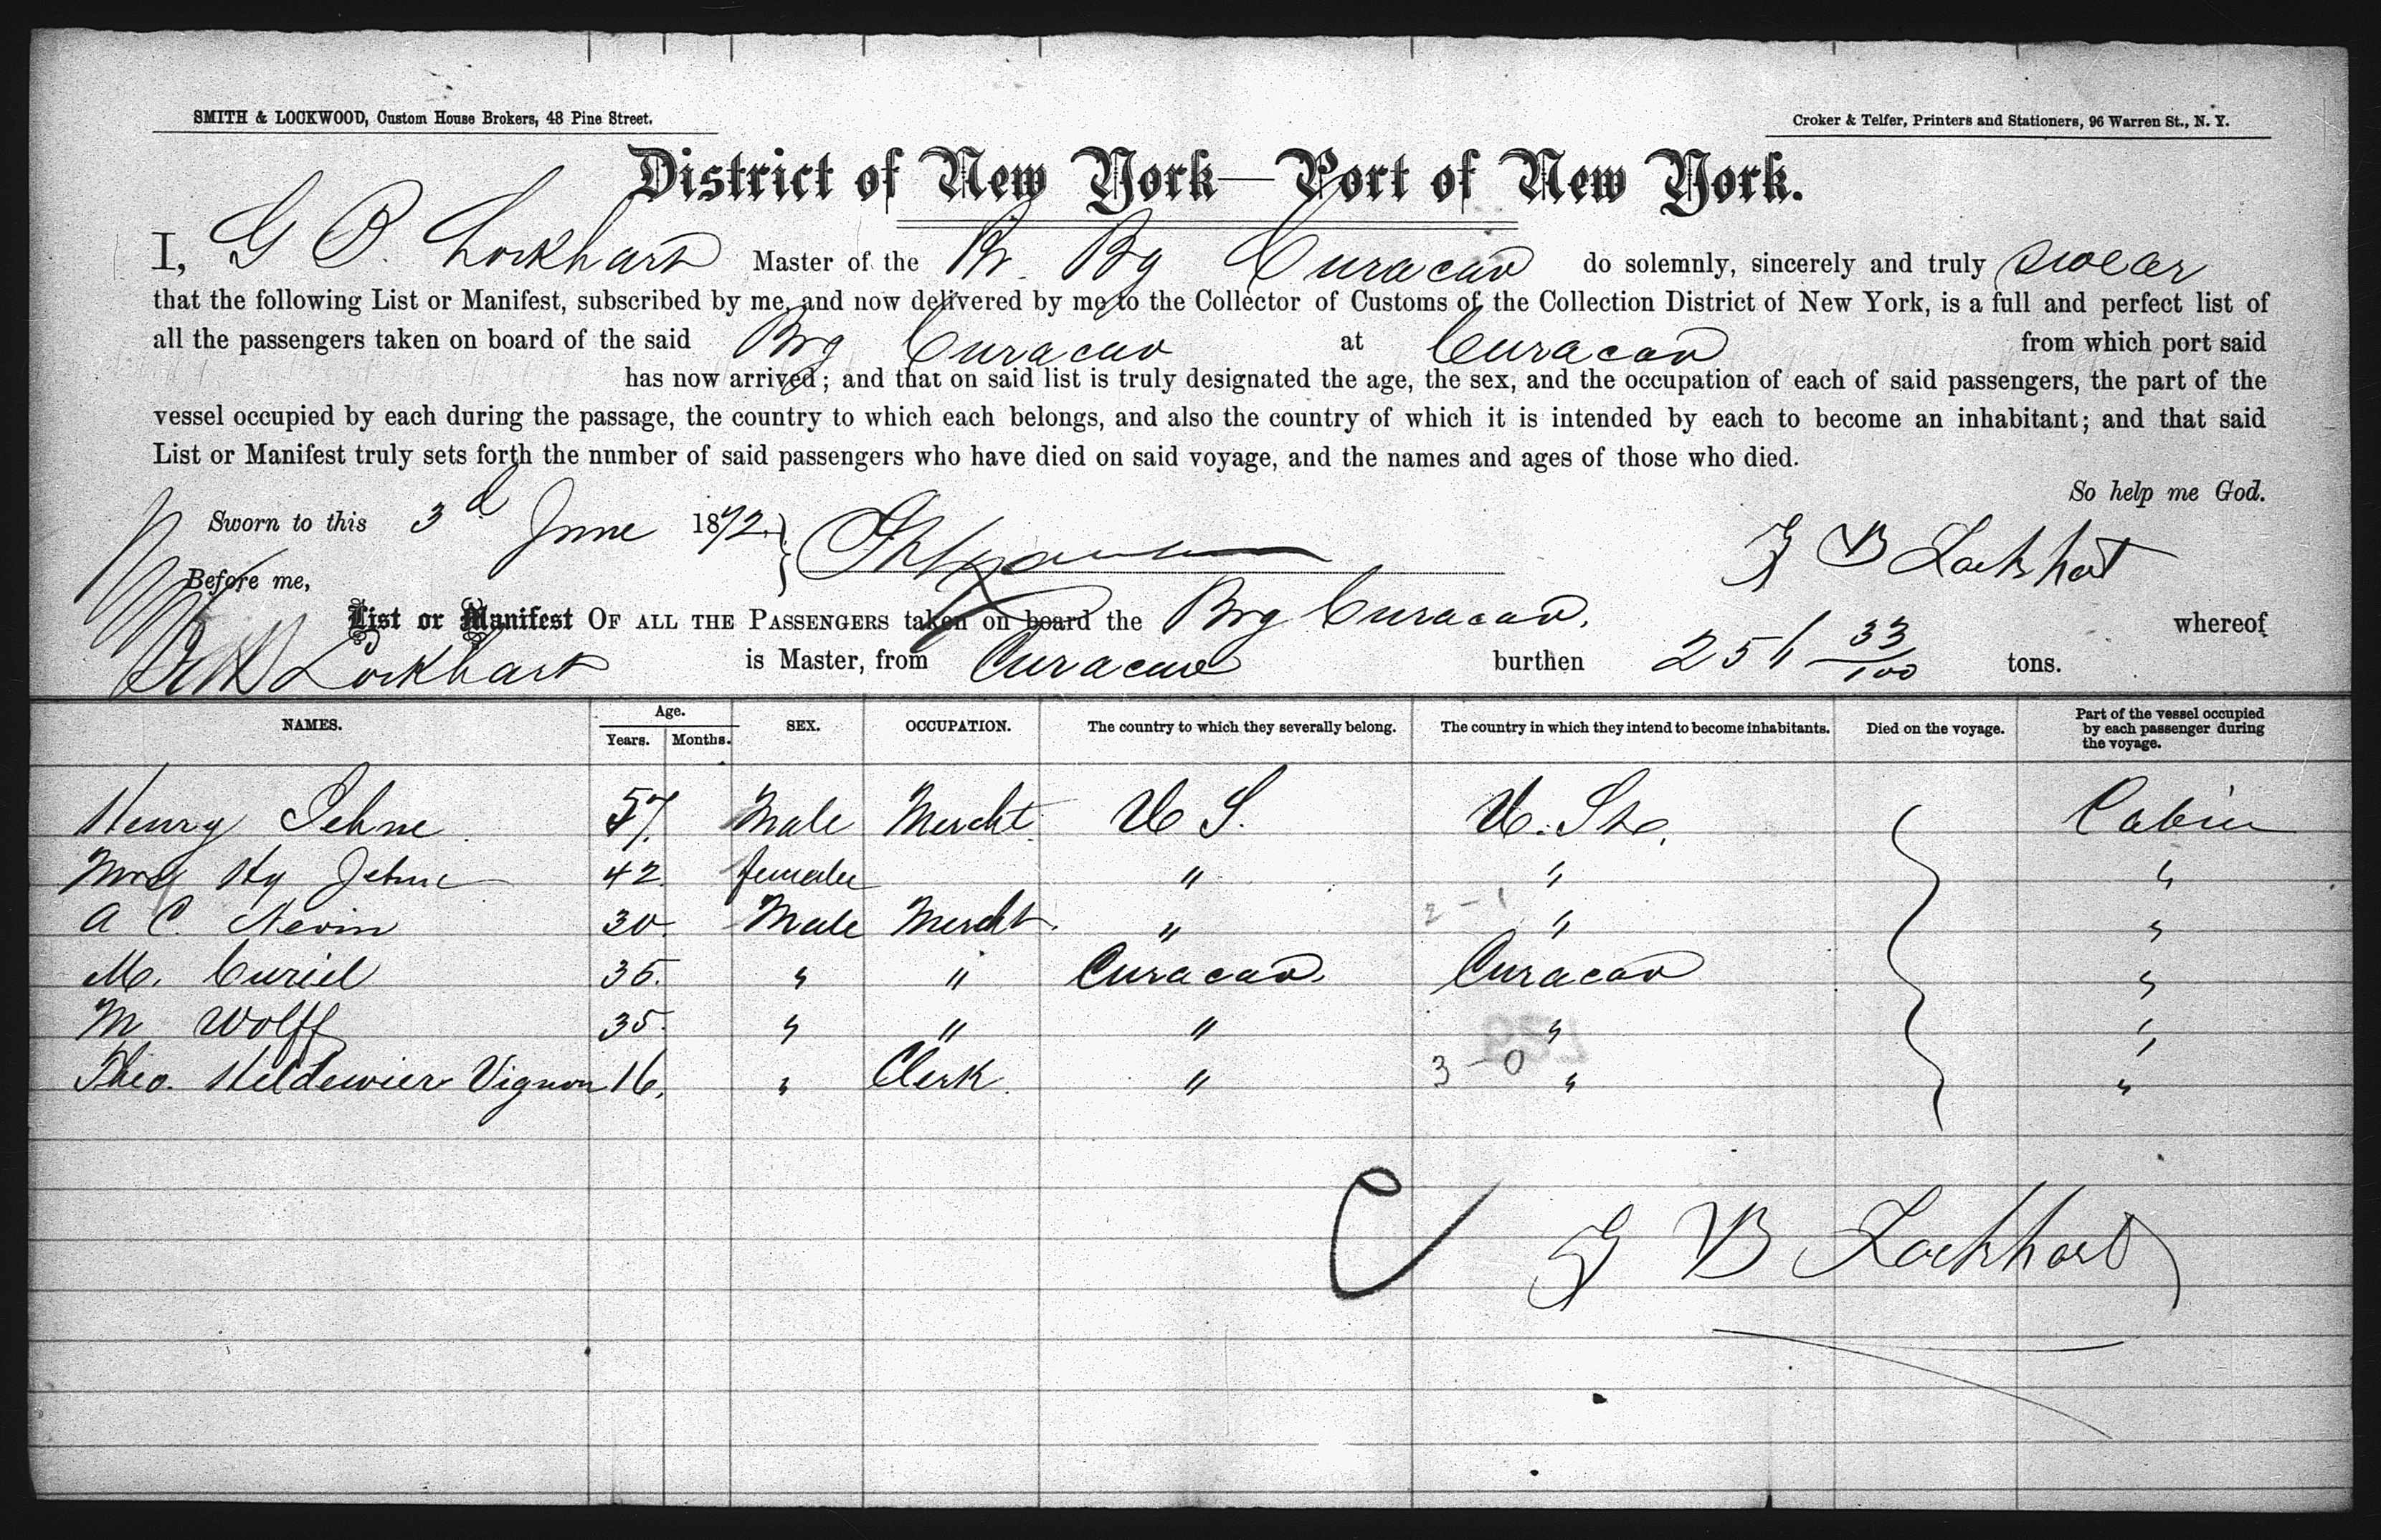 SMITH & LOCKWOOD, Custom House Brokers, 48 Pine Street.
Croker & Telfer, Printers and Stationers, 96 Warren St., N. Y.
District of New York—Port of New York.
I, G B. Lockhart Master of the Br. Bg Curacao do solemnly, sincerely and truly swear
that the following List or Manifest, subscribed by me, and now delivered by me to the Collector of Customs of the Collection District of New York, is a full and perfect list of
all the passengers taken on board of the said Brg Curacao at Curacao from which port said
has now arrived; and that on said list is truly designated the age, the sex, and the occupation of each of said passengers, the part of the
vessel occupied by each during the passage, the country to which each belongs, and also the country of which it is intended by each to become an inhabitant; and that said
List or Manifest truly sets forth the number of said passengers who have died on said voyage, and the names and ages of those who died.
So help me God.
Sworn to this 3d June 1872.
G B Lockhart
Before me,
List or Manifest OF ALL THE PASSENGERS taken on board the Brg Curacao, whereof
Lockhart is Master, from Curacao burthen 251 33/100 tons.
NAMES. Age. Years. Months. SEX. OCCUPATION. The country to which they severally belong. The country in which they intend to become inhabitants. Died on the voyage. Part of the vessel occupied by each passenger during the voyage.
Henry Jehne 57. Male Mercht U S. U. Sts. Cabin
Mrs Hy Jehne 42. female " " "
A C. Nevin 30. Male Mercht. " 2 - 1 " "
M. Curiel 35. " " Curacao. Curacao "
M Wolff 35. " " " " "
Theo. Heldewier Vignon 16. " Clerk. " 3 - 0 " "
C
G B Lockhart